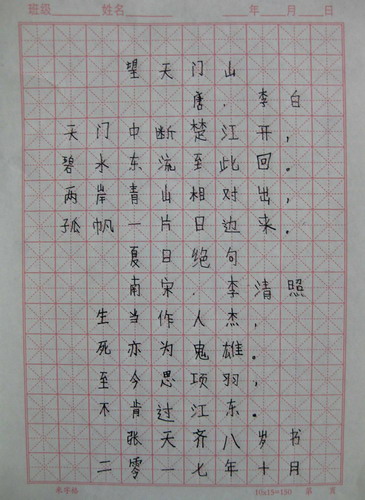 班级 姓名 年 月 日
望天门山
唐.李白
天门中断楚江开，
碧水东流至此回。
两岸青山相对出，
孤帆一片日边来。
夏日绝句
南宋.李清照
生当作人杰，
死亦为鬼雄。
至今思项羽，
不肯过江东。
张天齐八岁书
二零一七年十月
米字格 10x15=150 第 页